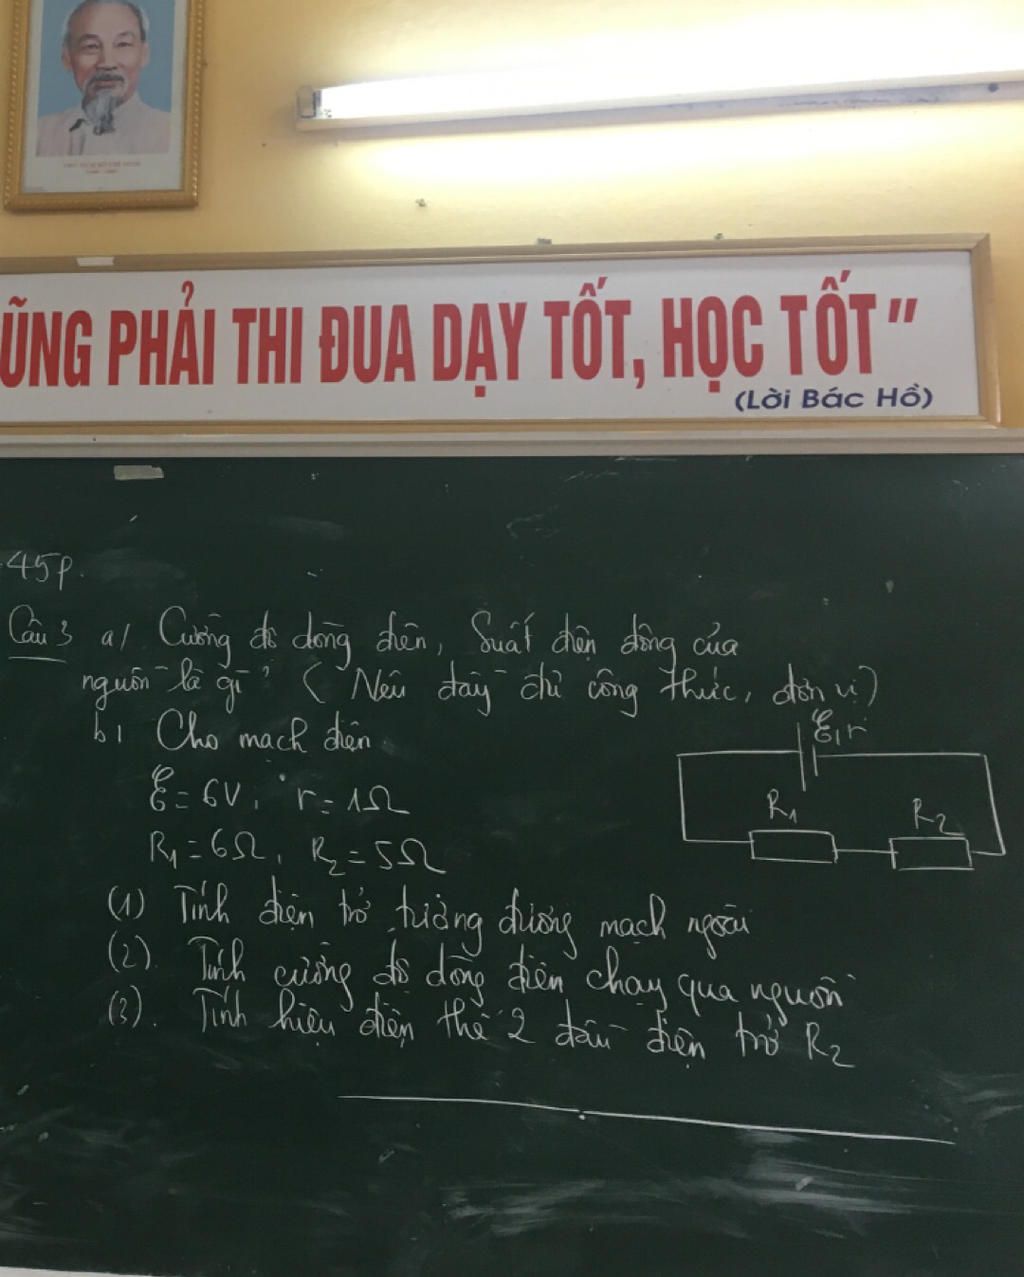 ŨNG PHẢI THI ĐUA DẠY TỐT, HỌC TỐT"
(Lời Bác Hồ)
45p.
Câu 3 a/ Cường độ dòng điện, Suất điện động của
nguồn là gì? (Nêu đầy đủ công thức, đơn vị)
b/ Cho mạch điện
ℰ, r
ℰ = 6V, r = 1Ω
R₁ R₂
R₁ = 6Ω, R₂ = 5Ω
(1) Tính điện trở tương đương mạch ngoài
(2). Tính cường độ dòng điện chạy qua nguồn
(3). Tính hiệu điện thế 2 đầu điện trở R₂